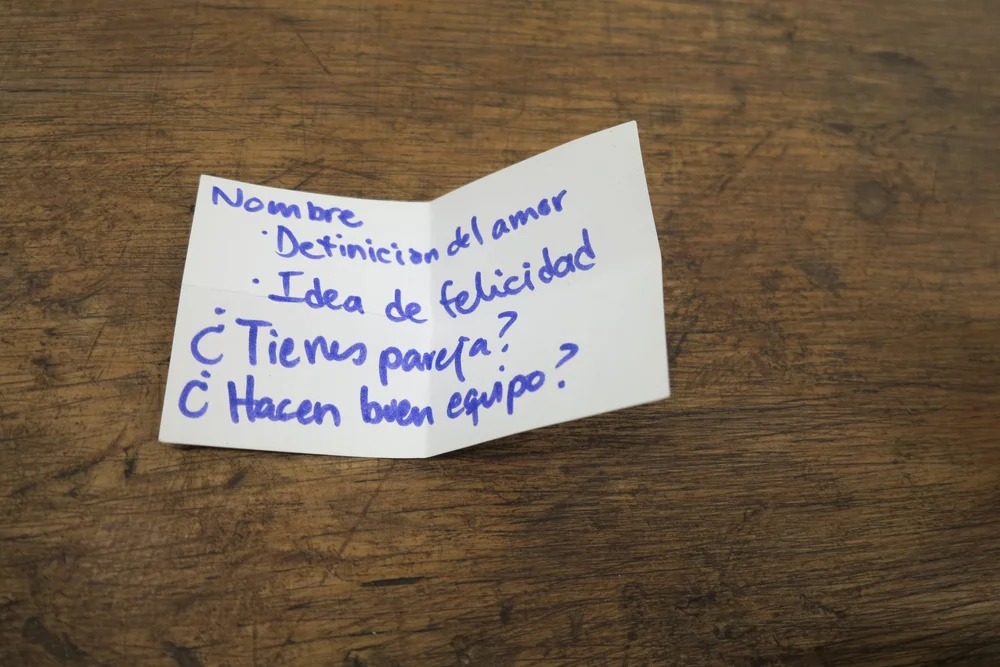 Nombre
· Definicion del amor
· Idea de felicidad
¿Tienes pareja?
¿Hacen buen equipo?